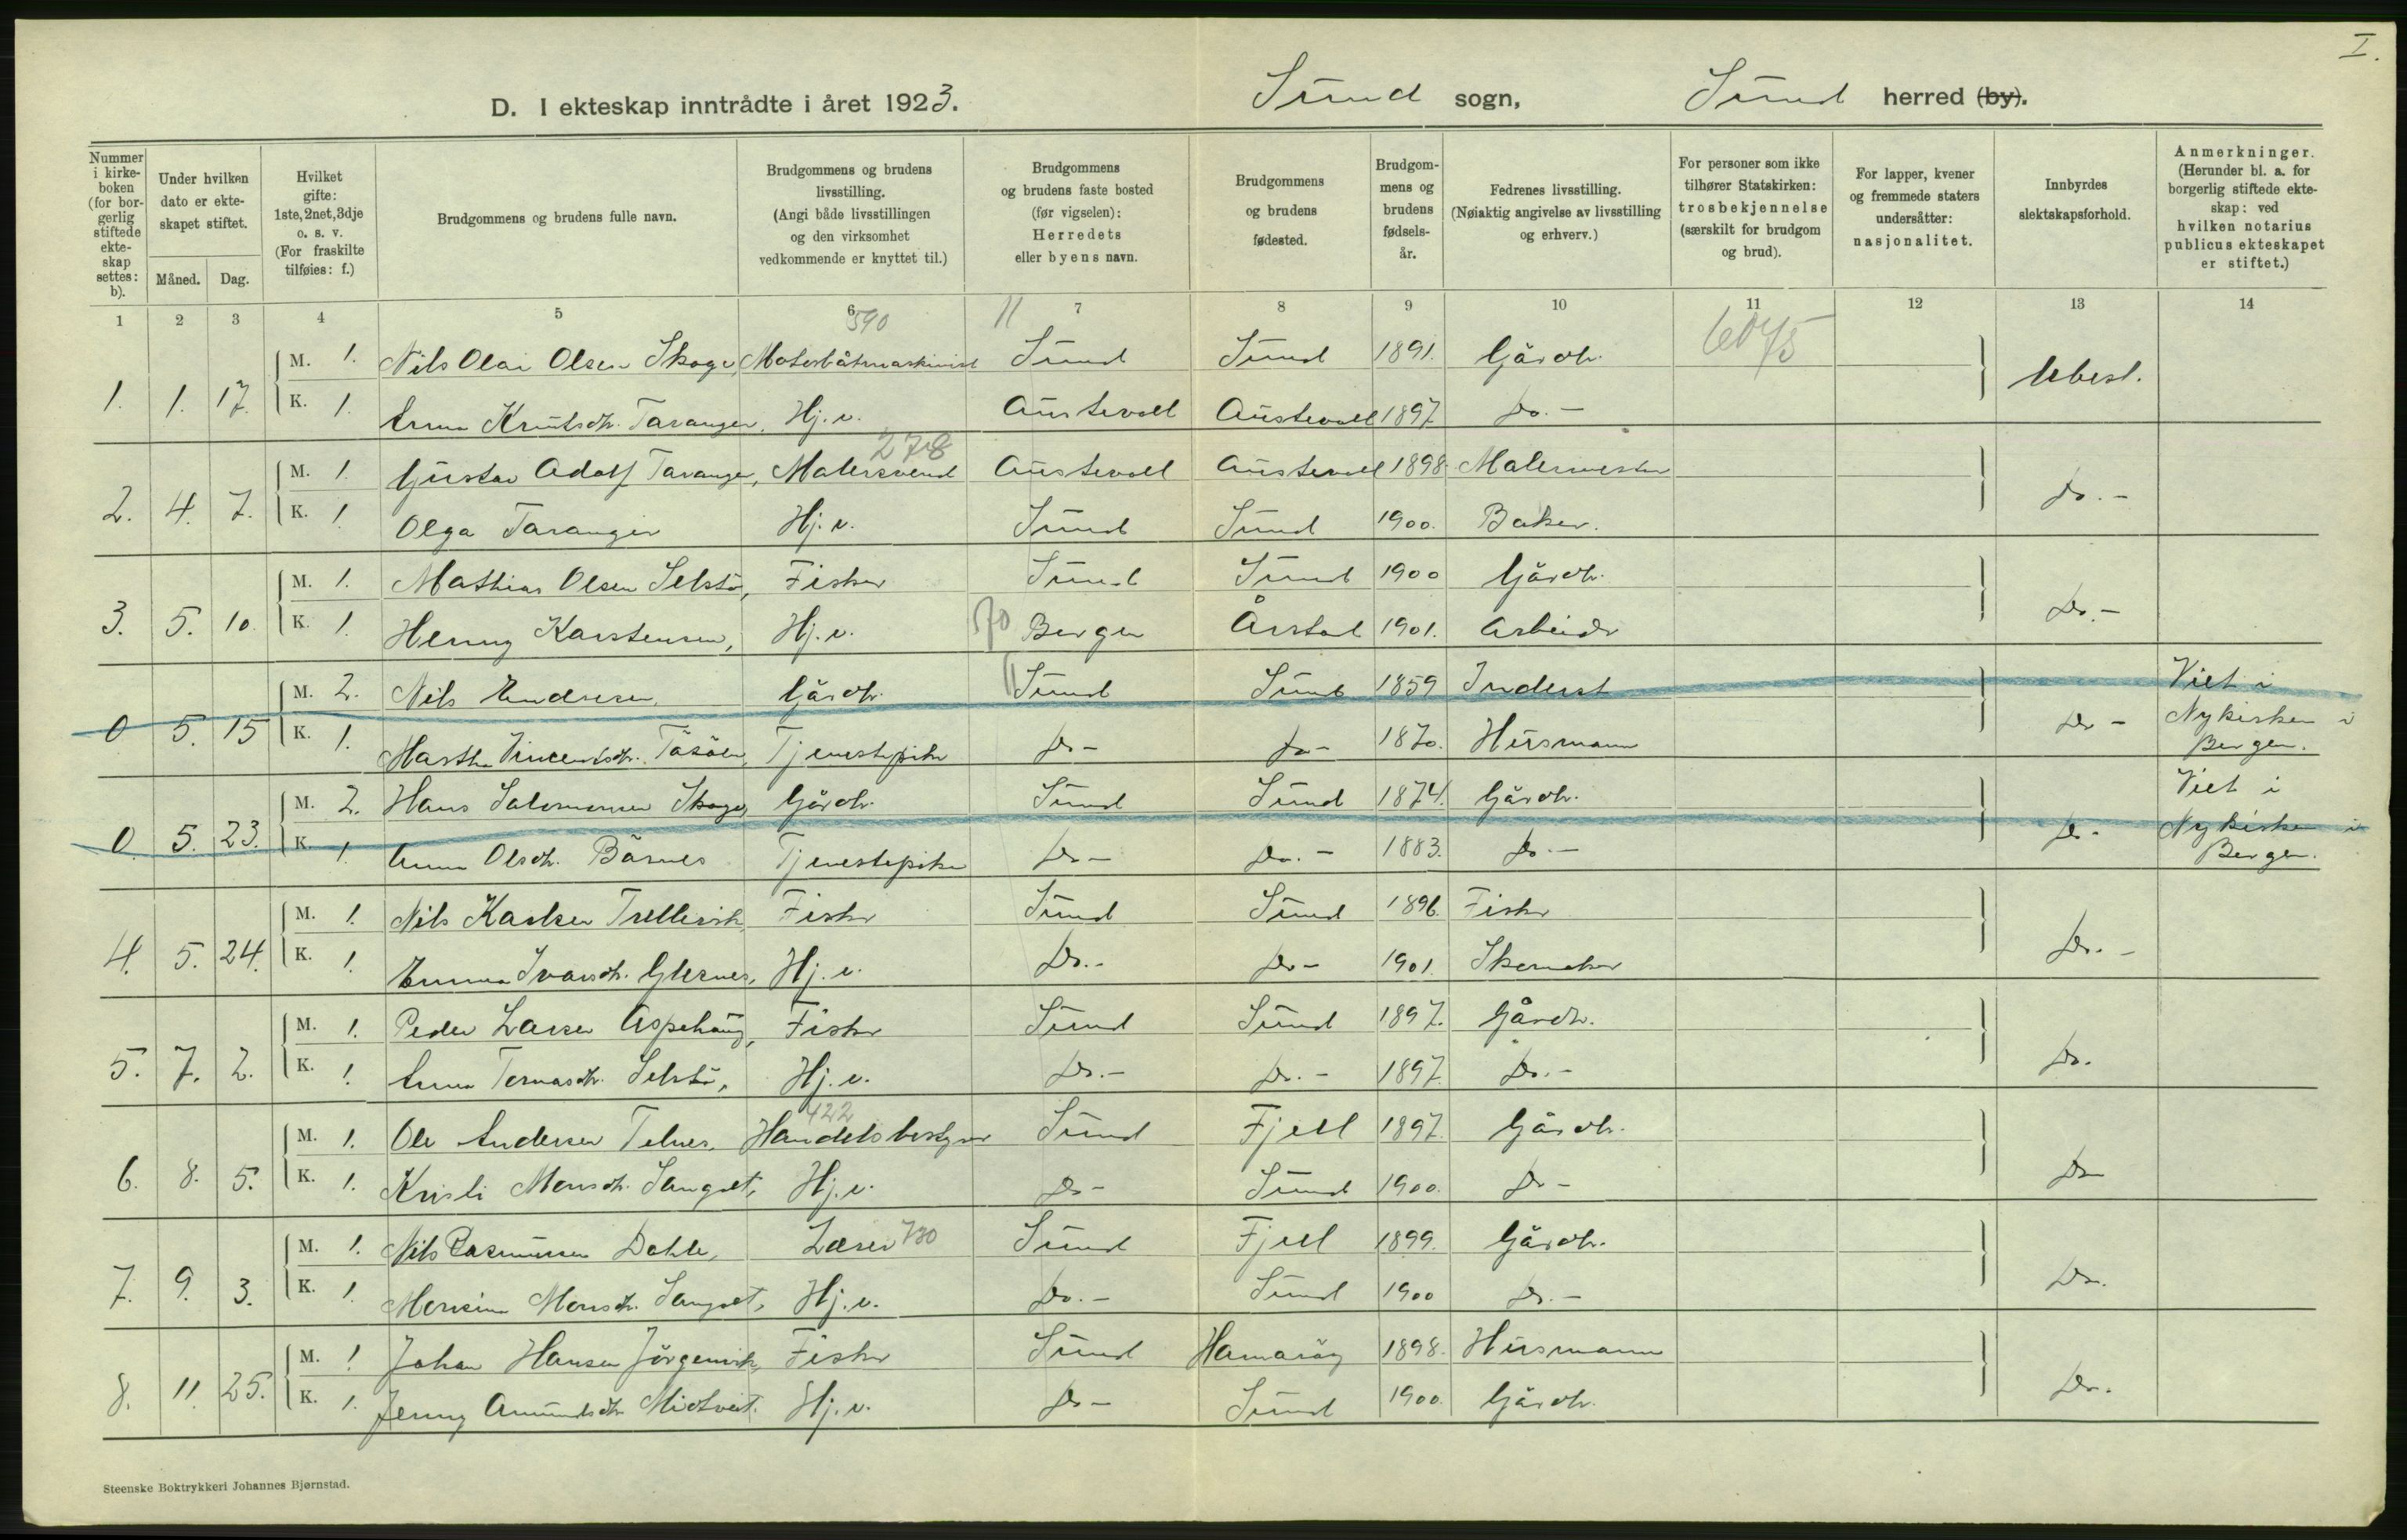 I.
D. I ekteskap inntrådte i året 1923. Sund sogn, Sund herred (by).
Nummer i kirkeboken (for borgerlig stiftede ekteskap settes: b).
Under hvilken dato er ekteskapet stiftet.
Måned. Dag.
Hvilket gifte: 1ste, 2net, 3dje o. s. v. (For fraskilte tilføies: f.)
Brudgommens og brudens fulle navn.
Brudgommens og brudens livsstilling. (Angi både livsstillingen og den virksomhet vedkommende er knyttet til.)
Brudgommens og brudens faste bosted (før vigselen): Herredets eller byens navn.
Brudgommens og brudens fødested.
Brudgommens og brudens fødselsår.
Fedrenes livsstilling. (Nøiaktig angivelse av livsstilling og erhverv.)
For personer som ikke tilhører Statskirken: trosbekjennelse (særskilt for brudgom og brud).
For lapper, kvener og fremmede staters undersåtter: nasjonalitet.
Innbyrdes slektskapsforhold.
Anmerkninger. (Herunder bl. a. for borgerlig stiftede ekteskap: ved hvilken notarius publicus ekteskapet er stiftet.)
1 2 3 4 5 6 7 8 9 10 11 12 13 14
590 11
1. 1. 17. M. 1. Nils Olai Olsen Skoge, Motorbåtmaskinist Sund Sund 1891. Gårdbr. Ubesl.
K. 1. Anna Knutsdtr. Taranger, Hj. v. Austevoll Austevoll 1897 Do. -
278
2. 4. 7. M. 1. Gustav Adolf Taranger, Malersvend Austevoll Austevoll 1898. Malermester Do. -
K. 1. Olga Taranger Hj. v. Sund Sund 1900. Baker.
3. 5. 10. M. 1. Mathias Olsen Selstö, Fisker Sund Sund 1900 Gårdbr. Do. -
K. 1. Henny Karstensen, Hj. v. 70 Bergen Årstad 1901. Arbeider
0 5. 15 M. 2. Nils Endresen, Gårdbr. 11 Sund Sund 1859 Inderst Do - Viet i Nykirken i Bergen.
K. 1. Martha Vincentsdtr. Tösöen, Tjenestepike Do - Do - 1870. Husmann
0. 5. 23. M. 2. Hans Salomonsen Skoge, Gårdbr. Sund Sund 1874. Gårdbr. Do - Viet i Nykirken i Bergen.
K. 1. Anna Olsdtr. Börnes Tjenestepike Do - Do. - 1883. Do. -
4. 5. 24. M. 1. Nils Karlsen Trellevik Fisker Sund Sund 1896. Fisker Do. -
K. 1. Emma Ivarsdtr. Glesnes, Hj. v. Do. - Do - 1901. Skomaker
5. 7. 2. M. 1. Peder Larsen Aspehaug, Fisker Sund Sund 1897. Gårdbr. Do.
K. 1. Anna Tomasdtr. Selstö, Hj. v. Do. - Do. - 1897. Do. -
422
6. 8. 5. M. 1. Ole Andersen Telnes, Handelsbestyrer Sund Fjell 1897. Gårdbr. Do
K. 1. Kristi Monsdtr. Sangolt, Hj. v. Do - Sund 1900. Do -
7. 9. 3. M. 1. Nils Rasmussen Dahle, Lærer 730 Sund Fjell 1899. Gårdbr. Do.
K. 1. Monsina Monsdtr. Sangolt, Hj. v. Do. - Sund 1900 Do. -
8. 11. 25. M. 1 Johan Hansen Jörgensvik, Fisker Sund Hamaröy 1898. Husmann Do.
K. 1. Jenny Amundsdtr. Midtveit. Hj. v. Do - Sund 1900. Gårdbr.
Steenske Boktrykkeri Johannes Bjørnstad.